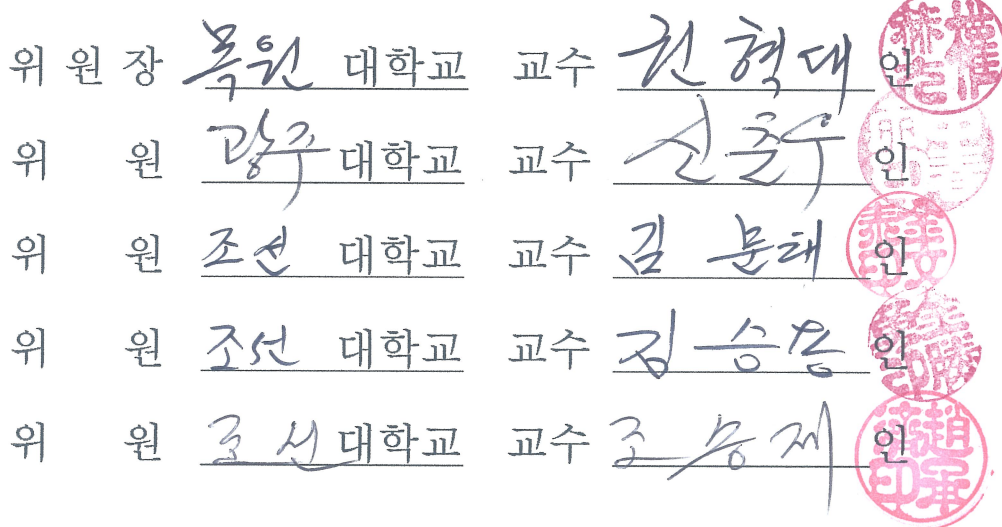 위 원 장 목원 대학교 교수 권혁대 인
위 원 광주 대학교 교수 신춘우 인
위 원 조선 대학교 교수 김문태 인
위 원 조선 대학교 교수 김승용 인
위 원 조선 대학교 교수 조승제 인